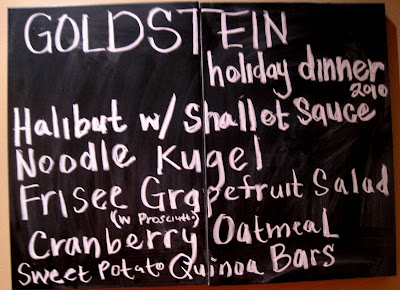 GOLDSTEIN
holiday dinner
2010
Halibut w/ Shallot Sauce
Noodle Kugel
Frisee Grapefruit Salad
(w Prosciutto)
Cranberry Oatmeal
Sweet Potato Quinoa Bars